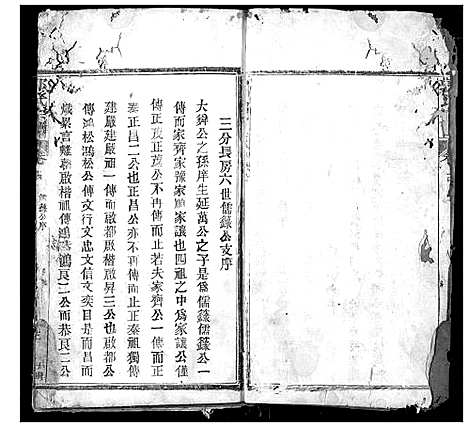 三分長房六世儒錄公支序
大舜公之孫庠生延萬公之子是為儒錄儒錄公一
傳而家齊家豫家順家讓也四祖之中為家讓公僅
傳正茂正茂公不再傳而止若夫家齊公一傳而正
泰正昌二公正昌公亦不再傳而止正泰祖獨傳
建嚴建嚴祖一傳而啟都啟楷啟昇三公也啟都公
傳鴻松鴻松公傳文行文忠文信文奕目是而昌而
熾累言難罄啟楷祖傳鴻恭鴻良二公而恭良二公